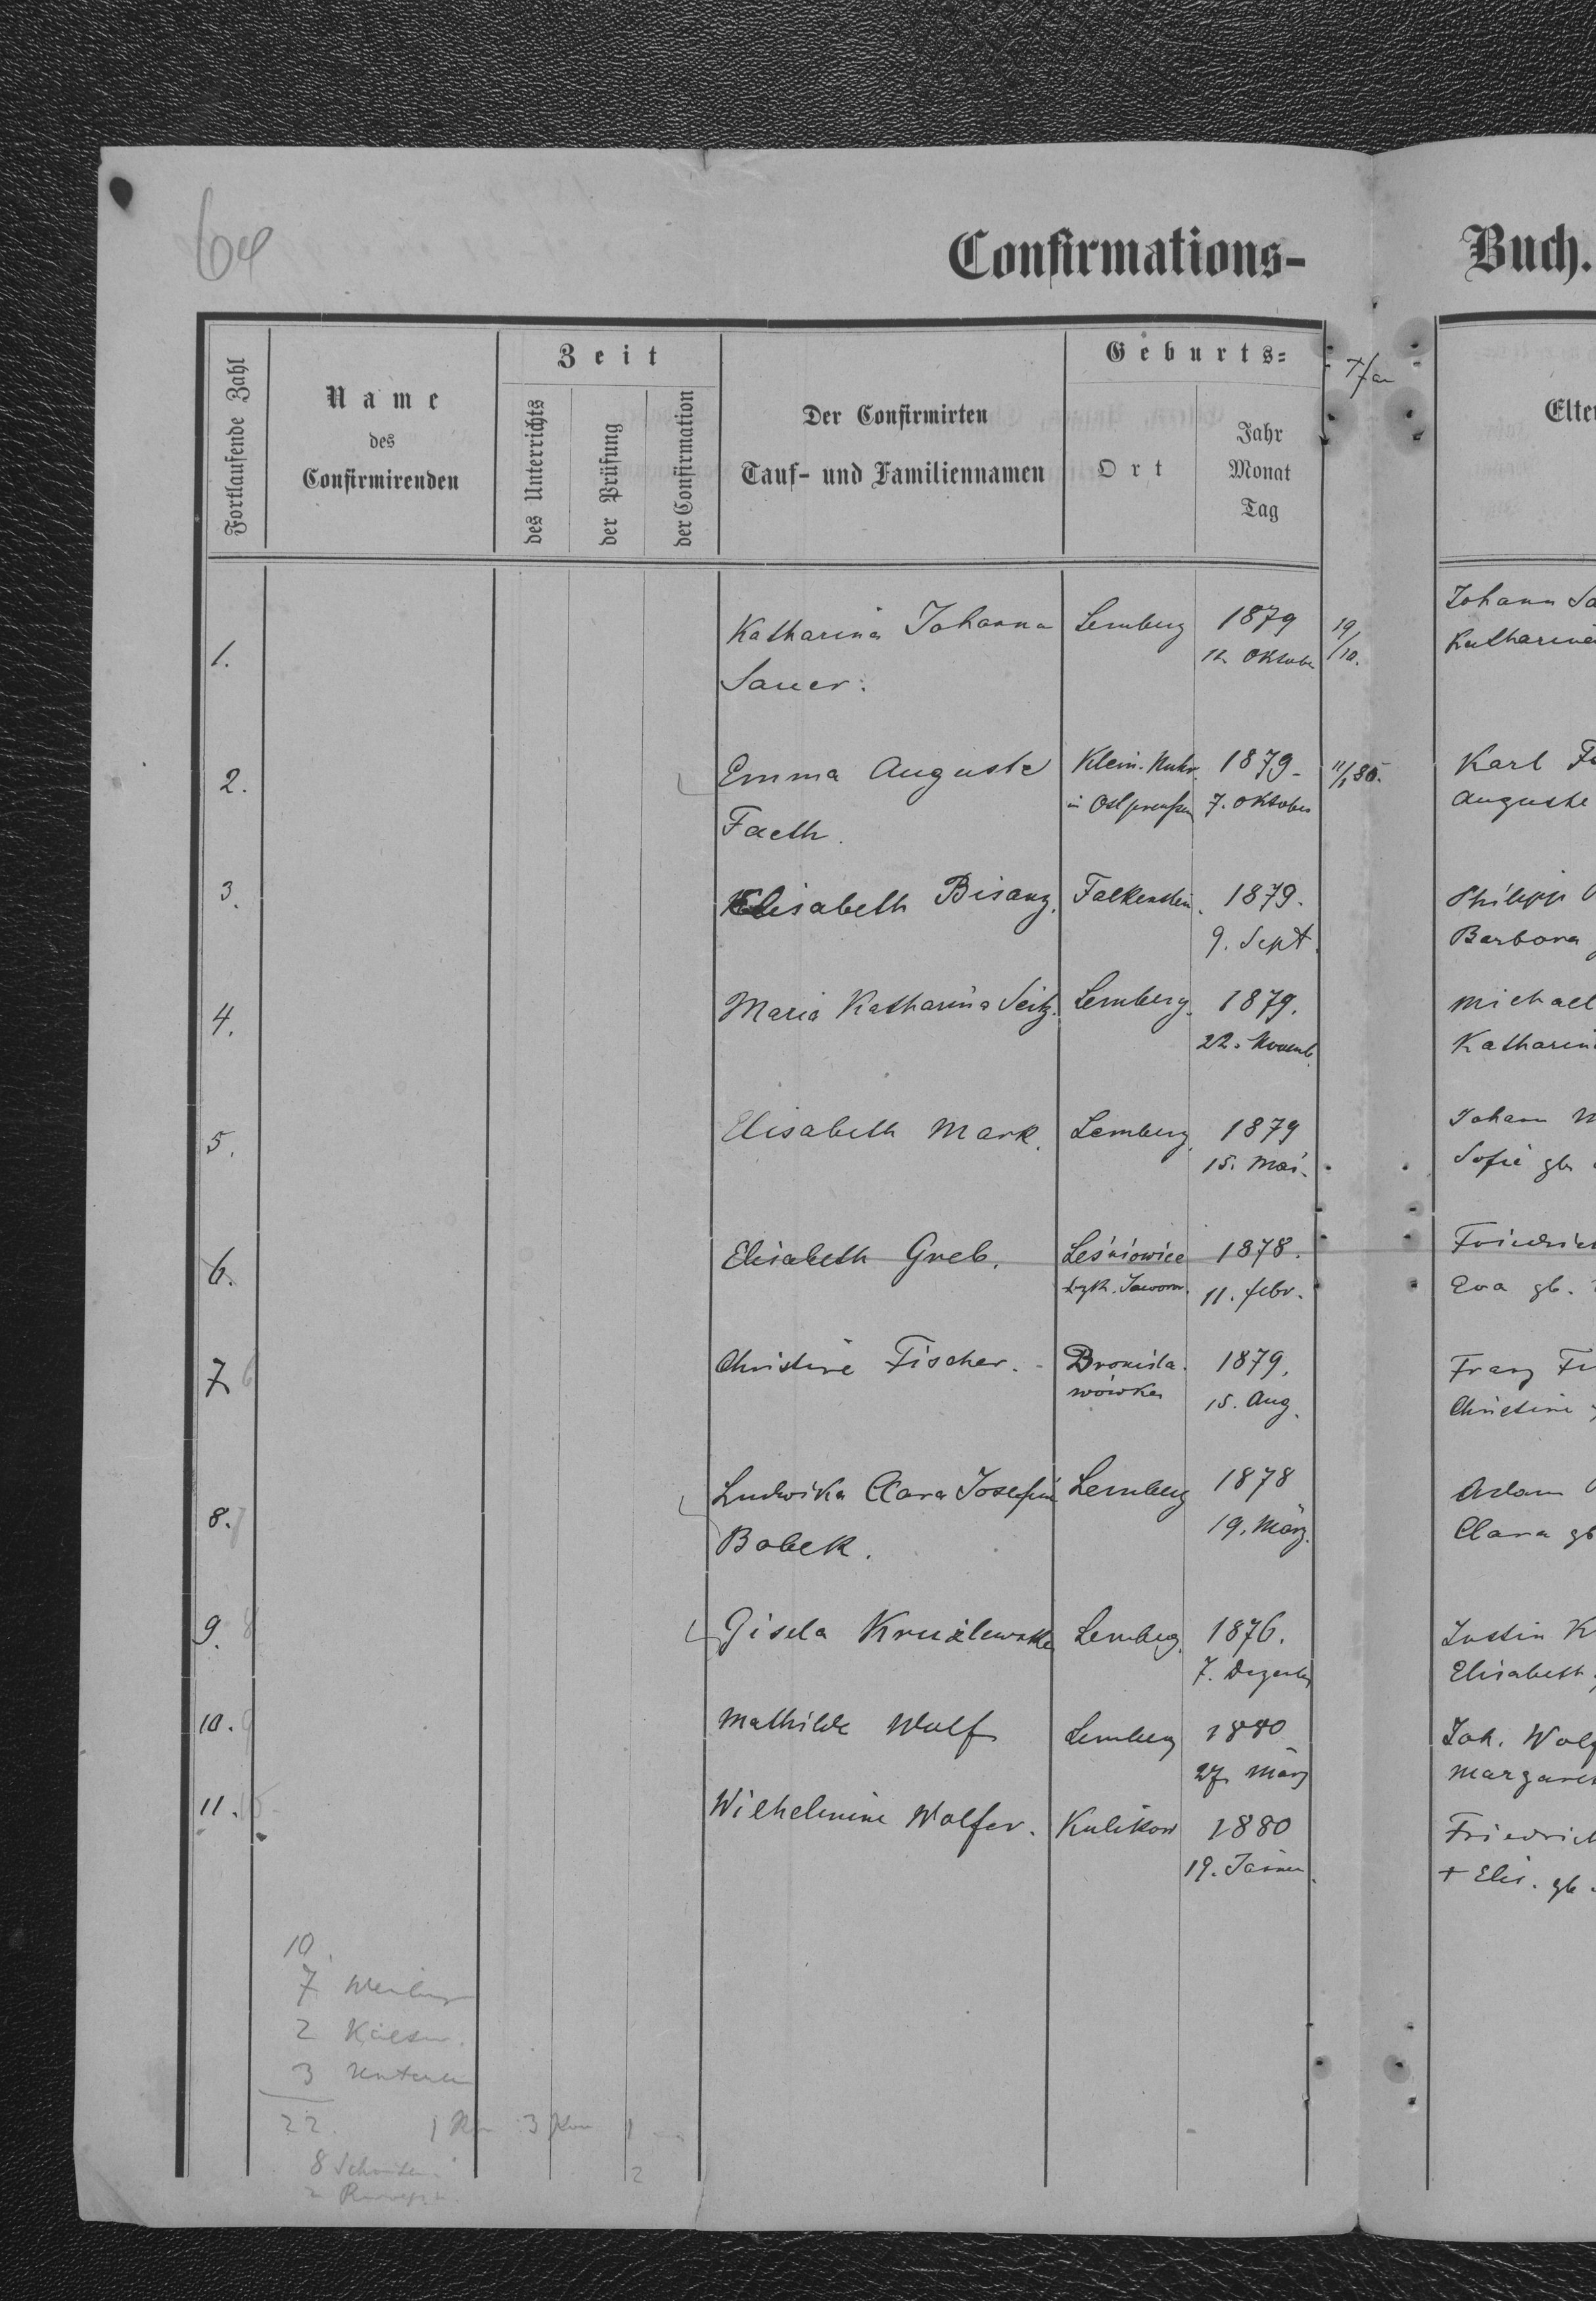 64
Confirmations-
Buch.
Fortlaufende Zahl
Name
des
Confirmirenden
Zeit
des Unterrichts
der Prüfung
der Confirmation
Der Confirmirten
Tauf- und Familiennamen
Geburts=
Ort
Jahr
Monat
Tag
1.
Katharina Johanna
Sauer.
Lemberg
1879
12 Oktober
19/10.
Johann
Katharina
2.
Emma Auguste
Faeth.
Klein.
in Ostpreußen
1879
7. Oktober
11/1 80.
Karl
Auguste
3.
Elisabeth Bisanz.
Falkenstein.
1879.
9. Sept.
Philipp
Barbara
4.
Maria Katharina Seitz.
Lemberg.
1879.
22. Novemb.
Michael
Katharin
5.
Elisabeth Mark.
Lemberg.
1879
15. Mai.
Johann M
Sofie gb
6.
Elisabeth Greb.
Leśniowice
bzk. Jawor.
1878.
11. febr.
Friedrich
Eva gb.
7 6
Christine Fischer.
Bronisla-
wówka
1879.
15. Aug.
Franz Fi
Christine
8. 7
Ludwika Clara Josefine
Bobek.
Lemberg
1878
19. März.
Adam
Clara gb
9. 8
Gisela
Lemberg.
1876.
7. Dezember
Justin K
Elisabeth
10. 9
Mathilde Wolf
Lemberg
1880
27. März
Joh. Wolf
Margaret
11.
Wilhelmine Wolfer.
Kulikow
1880
19. Jänner.
Friedrich
+ Elis. gb.
10.
7
2
3
22.
3
1
8
2